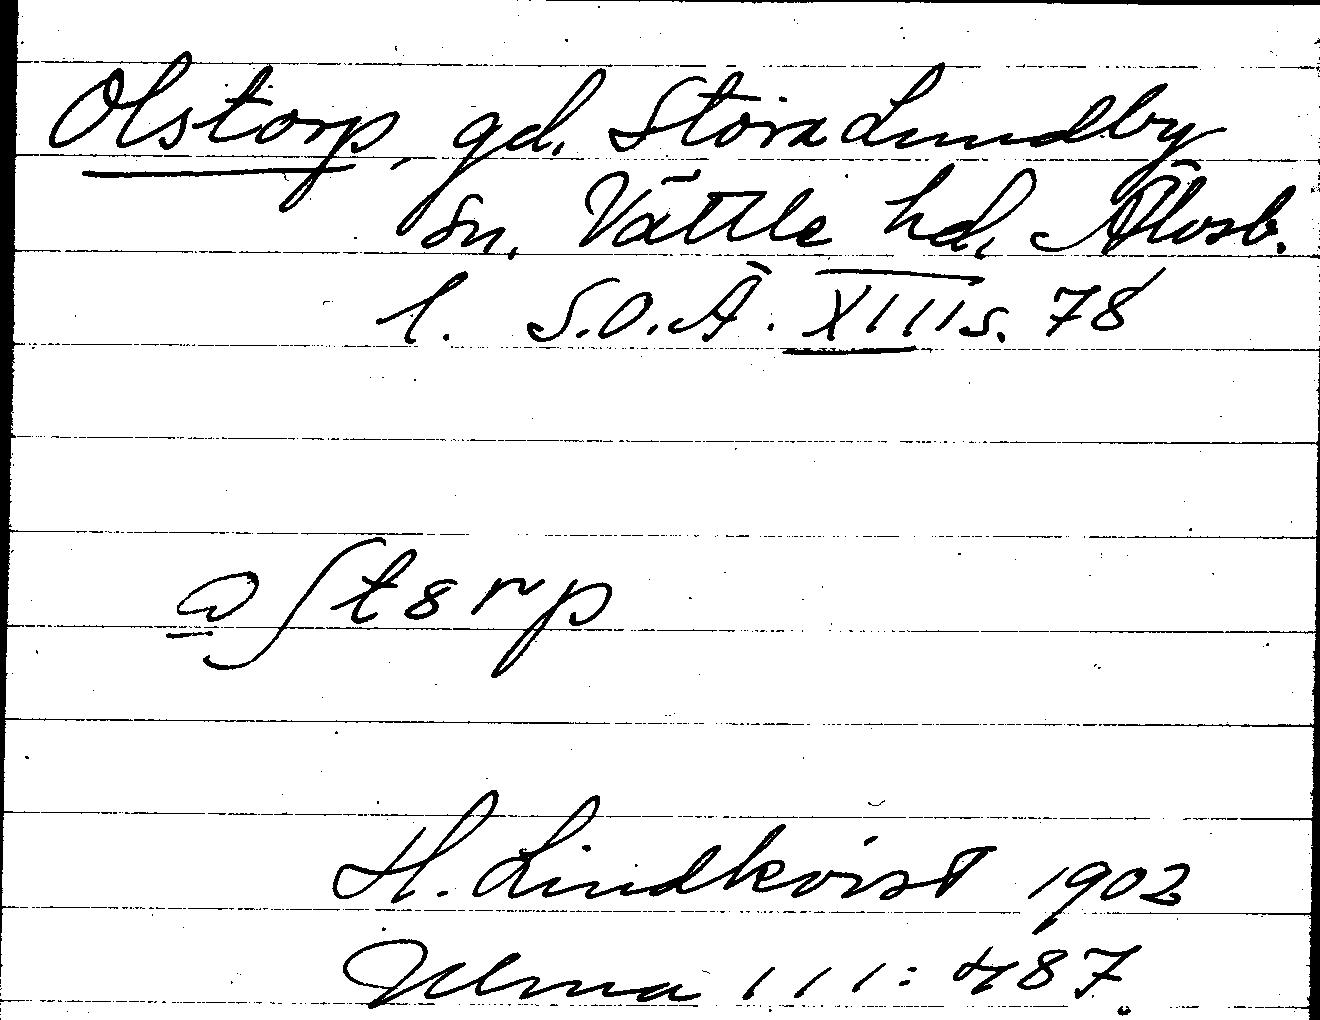 Olstorp, gd. Stora Lundby
sn, Vättle hd, Älvsb.
l. S.O.Ä. XIII s. 78
H. Lindkvist 1902
Ulma 111:487